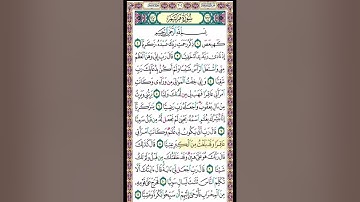 سُورَةُ مَرْيَمَ
بِسْمِ ٱللَّهِ ٱلرَّحْمَٰنِ ٱلرَّحِيمِ
كٓهيعٓصٓ ١ ذِكْرُ رَحْمَتِ رَبِّكَ عَبْدَهُۥ زَكَرِيَّآ ٢
إِذْ نَادَىٰ رَبَّهُۥ نِدَآءً خَفِيًّا ٣ قَالَ رَبِّ إِنِّي وَهَنَ ٱلْعَظْمُ
مِنِّي وَٱشْتَعَلَ ٱلرَّأْسُ شَيْبًا وَلَمْ أَكُنۢ بِدُعَآئِكَ رَبِّ
شَقِيًّا ٤ وَإِنِّي خِفْتُ ٱلْمَوَٰلِيَ مِن وَرَآءِي وَكَانَتِ ٱمْرَأَتِي
عَاقِرًا فَهَبْ لِي مِن لَّدُنكَ وَلِيًّا ٥ يَرِثُنِي وَيَرِثُ
مِنْ ءَالِ يَعْقُوبَ وَٱجْعَلْهُ رَبِّ رَضِيًّا ٦ يَٰزَكَرِيَّآ
إِنَّا نُبَشِّرُكَ بِغُلَٰمٍ ٱسْمُهُۥ يَحْيَىٰ لَمْ نَجْعَل لَّهُۥ مِن قَبْلُ سَمِيًّا ٧
قَالَ رَبِّ أَنَّىٰ يَكُونُ لِي غُلَٰمٌ وَكَانَتِ ٱمْرَأَتِي
عَاقِرًا وَقَدْ بَلَغْتُ مِنَ ٱلْكِبَرِ عِتِيًّا ٨ قَالَ كَذَٰلِكَ
قَالَ رَبُّكَ هُوَ عَلَيَّ هَيِّنٌ وَقَدْ خَلَقْتُكَ مِن قَبْلُ وَلَمْ تَكُ
شَيْـًٔا ٩ قَالَ رَبِّ ٱجْعَل لِّيٓ ءَايَةً قَالَ ءَايَتُكَ أَلَّا
تُكَلِّمَ ٱلنَّاسَ ثَلَٰثَ لَيَالٍ سَوِيًّا ١٠ فَخَرَجَ عَلَىٰ قَوْمِهِۦ
مِنَ ٱلْمِحْرَابِ فَأَوْحَىٰٓ إِلَيْهِمْ أَن سَبِّحُوا۟ بُكْرَةً وَعَشِيًّا ١١